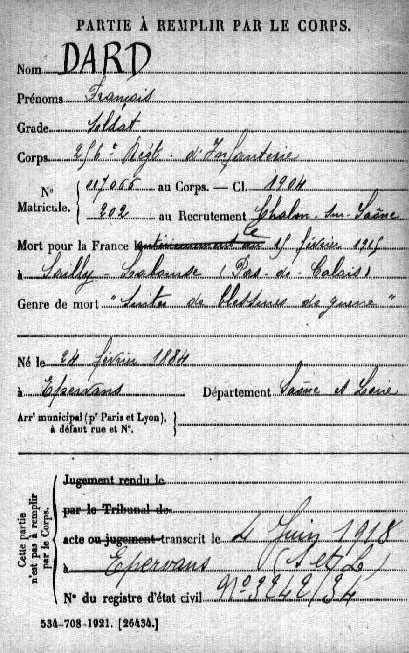 PARTIE À REMPLIR PAR LE CORPS.
Nom DARD
Prénoms François
Grade Soldat
Corps 256e Régt d'Infanterie
N° Matricule. { 017066 au Corps. — Cl. 1904
202 au Recrutement Chalon-sur-Saône
Mort pour la France le 15 février 1915
à Sailly-Labourse (Pas-de-Calais)
Genre de mort "Suites de blessures de guerre"
Né le 24 février 1884
à Epervans Département Saône et Loire
Arrt municipal (pr Paris et Lyon), à défaut rue et N°. }
Cette partie n'est pas à remplir par le Corps.
Jugement rendu le
par le Tribunal de
acte ou jugement transcrit le 4 Juin 1918
à Epervans (S et L)
N° du registre d'état civil N° 3242/34
534-708-1921. [26434.]